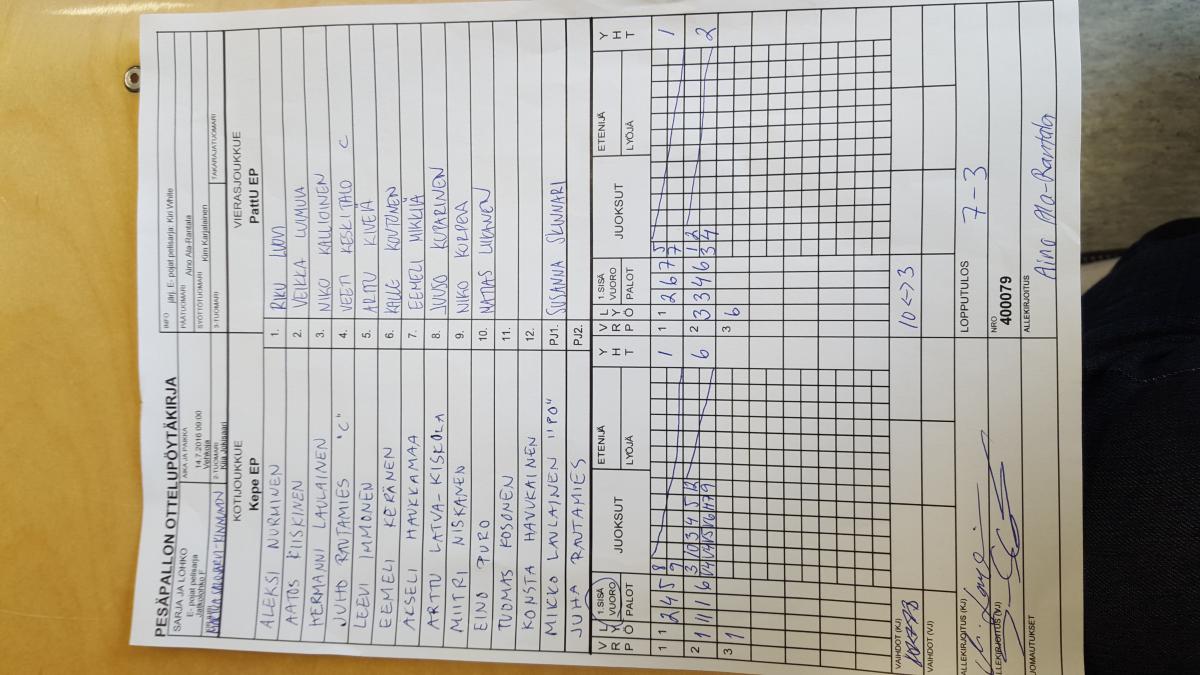 PESÄPALLON OTTELUPÖYTÄKIRJA
SARJA JA LOHKO
E- pojat pelisarja
Jatkolohko F
AIKA JA PAIKKA
14.7.2016 09:00
Vehkoja
INFO järj. E- pojat pelisarja: Kiri White
PÄÄTUOMARI Aino Ala-Rantala
SYÖTTÖTUOMARI Kim Karjalainen
2-TUOMARI
3-TUOMARI
TAKARAJATUOMARI
KOTIJOUKKUE
Kepe EP
VIERASJOUKKUE
PattU EP
ALEKSI NURMINEN 1. RIKU LUOVI
AATOS KIISKINEN 2. VEIKKA LUIMULA
HERMANNI LAULAINEN 3. NIKO KALLIOINEN
JUHO RAUTAMIES "C" 4. VEETI KESKITALO C
LEEVI IMMONEN 5. ARTTU KIVELÄ
EEMELI KERÄNEN 6. KALLE KOUTONEN
AKSELI HAUKKAMAA 7. EEMELI MIKKILÄ
ARTTU LATVA-KISKOLA 8. JUUSO KUPARINEN
MIITRI NISKANEN 9. NIKO KORPELA
EINO PURO 10. MATIAS LIUKANEN
TUOMAS KOSONEN 11.
KONSTA HAVUKAINEN 12.
MIKKO LAULAINEN "PO" PJ1. SUSANNA SKINNARI
JUHA RAUTAMIES PJ2.
V R P L Y Ö 1.SISÄ VUORO PALOT JUOKSUT ETENIJÄ LYÖJÄ Y H T
V R P L Y Ö 1.SISÄ VUORO PALOT JUOKSUT ETENIJÄ LYÖJÄ Y H T
1 1 2 4 5 9 8 1
1 1 2 6 7 7 5 1
2 1 11 11 6 3 10 3 4 5 12 6
2 3 3 4 6 3 1 2 4 2
3 1
3 6
VAIHDOT (KJ) 10<->3
VAIHDOT (VJ)
ALLEKIRJOITUS (KJ)
LOPPUTULOS 7-3
ALLEKIRJOITUS (VJ)
NRO
400079
HUOMAUTUKSET
ALLEKIRJOITUS
Aino Ala-Rantala